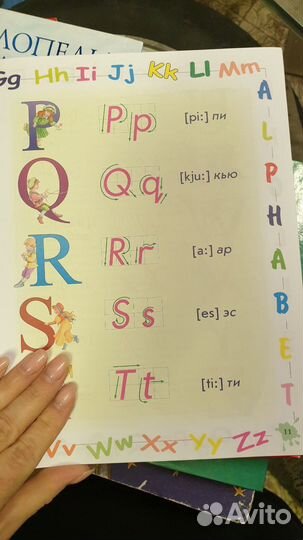 ЛОПЕДИ
Gg Hh Ii Jj Kk Ll Mm
P Pp [pi:] пи
Q Qq [kju:] кью
R Rr [a:] ар
S Ss [es] эс
Tt [ti:] ти
ALPHABET
11
Vv Ww Xx Yy Zz
Avito